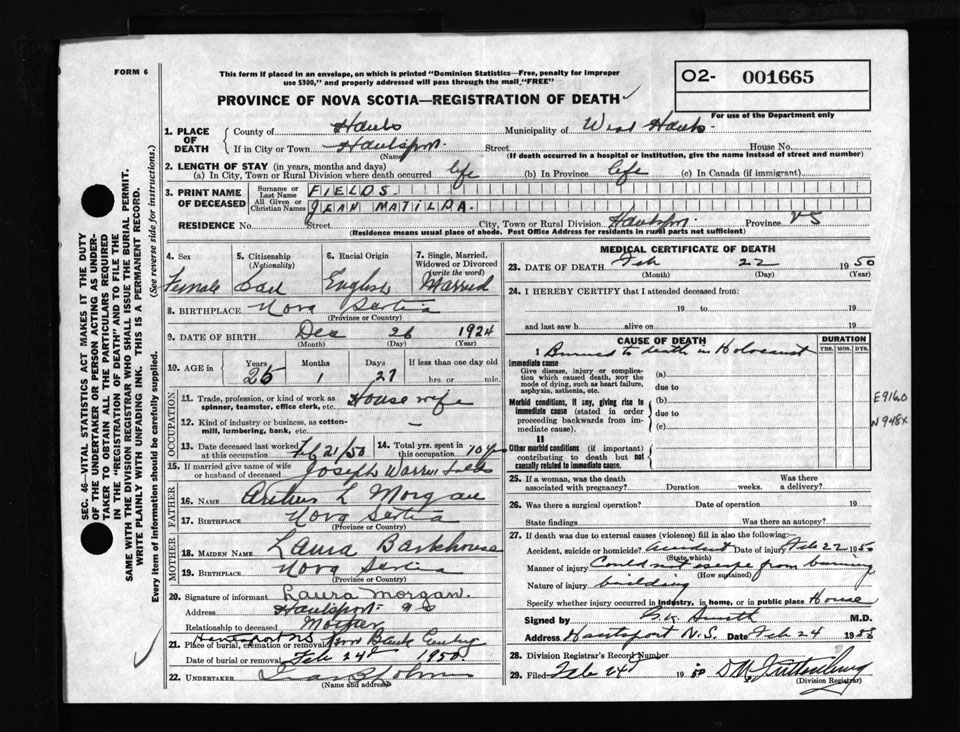 FORM 6
This form if placed in an envelope, on which is printed "Dominion Statistics—Free, penalty for improper
use $300," and properly addressed will pass through the mail "FREE"
O2- 001665
For use of the Department only
PROVINCE OF NOVA SCOTIA—REGISTRATION OF DEATH
1. PLACE OF DEATH County of Hants Municipality of West Hants
If in City or Town Hantsport Street House No.
(Name) (If death occurred in a hospital or institution, give the name instead of street and number)
2. LENGTH OF STAY (in years, months and days)
(a) In City, Town or Rural Division where death occurred life (b) In Province life (c) In Canada (if immigrant)
3. PRINT NAME OF DECEASED Surname or Last Name FIELDS
All Given or Christian Names JEAN MATILDA
RESIDENCE No. Street City, Town or Rural Division Hantsport Province NS
(Residence means usual place of abode. Post Office Address for residents in rural parts not sufficient)
4. Sex 5. Citizenship (Nationality) 6. Racial Origin 7. Single, Married, Widowed or Divorced (write the word)
Female English Married
8. BIRTHPLACE Nova Scotia
(Province or Country)
9. DATE OF BIRTH Dec 26 1924
(Month) (Day) (Year)
10. AGE in Years Months Days If less than one day old
25 1 27 hrs. or min.
OCCUPATION
11. Trade, profession, or kind of work as spinner, teamster, office clerk, etc. Housewife
12. Kind of industry or business, as cotten-mill, lumbering, bank, etc. —
13. Date deceased last worked at this occupation Feb 21/50 14. Total yrs. spent in this occupation 10 yrs
15. If married give name of wife or husband of deceased Joseph Warren Fields
FATHER
16. Name Arthur L Morgan
17. Birthplace Nova Scotia
(Province or Country)
MOTHER
18. Maiden Name Laura Barkhouse
19. Birthplace Nova Scotia
(Province or Country)
20. Signature of informant Laura Morgan.
Address Hantsport N S
Relationship to deceased Mother
21. Place of burial, cremation or removal Hantsport NS
Date of burial or removal Feb 24th 1950.
22. UNDERTAKER
(Name and address)
MEDICAL CERTIFICATE OF DEATH
23. DATE OF DEATH Feb 22 1950
(Month) (Day) (Year)
24. I HEREBY CERTIFY that I attended deceased from:
19 to 19
and last saw h alive on 19
CAUSE OF DEATH DURATION
YRS. MOS. DYS.
I Burned to death in Holocaust
Immediate cause
Give disease, injury or complication which caused death, NOT the mode of dying, such as heart failure, asphyxia, asthenia, etc.
(a)
due to
Morbid conditions, if any, giving rise to immediate cause (stated in order proceeding backwards from immediate cause).
(b)
due to
(c)
E916.0
N948X
II
Other morbid conditions (if important) contributing to death but not causally related to immediate cause.
25. If a woman, was the death associated with pregnancy? Duration weeks. Was there a delivery?
26. Was there a surgical operation? Date of operation 19
State findings Was there an autopsy?
27. If death was due to external causes (violence) fill in also the following:—
Accident, suicide or homicide? Accident Date of injury Feb 22 1950
(State which)
Manner of injury Could not escape from burning
(How sustained)
Nature of injury building
Specify whether injury occurred in industry, in home, or in public place House
Signed by G.K. Smith M.D.
Address Hantsport N.S. Date Feb 24 1950
28. Division Registrar's Record Number
29. Filed Feb 24th 1950
(Division Registrar)
SEC. 46—VITAL STATISTICS ACT MAKES IT THE DUTY
OF THE UNDERTAKER OR PERSON ACTING AS UNDER-
TAKER TO OBTAIN ALL THE PARTICULARS REQUIRED
IN THE "REGISTRATION OF DEATH" AND TO FILE THE
SAME WITH THE DIVISION REGISTRAR WHO SHALL ISSUE THE BURIAL PERMIT.
WRITE PLAINLY WITH UNFADING INK. THIS IS A PERMANENT RECORD.
Every item of information should be carefully supplied. (See reverse side for instructions.)